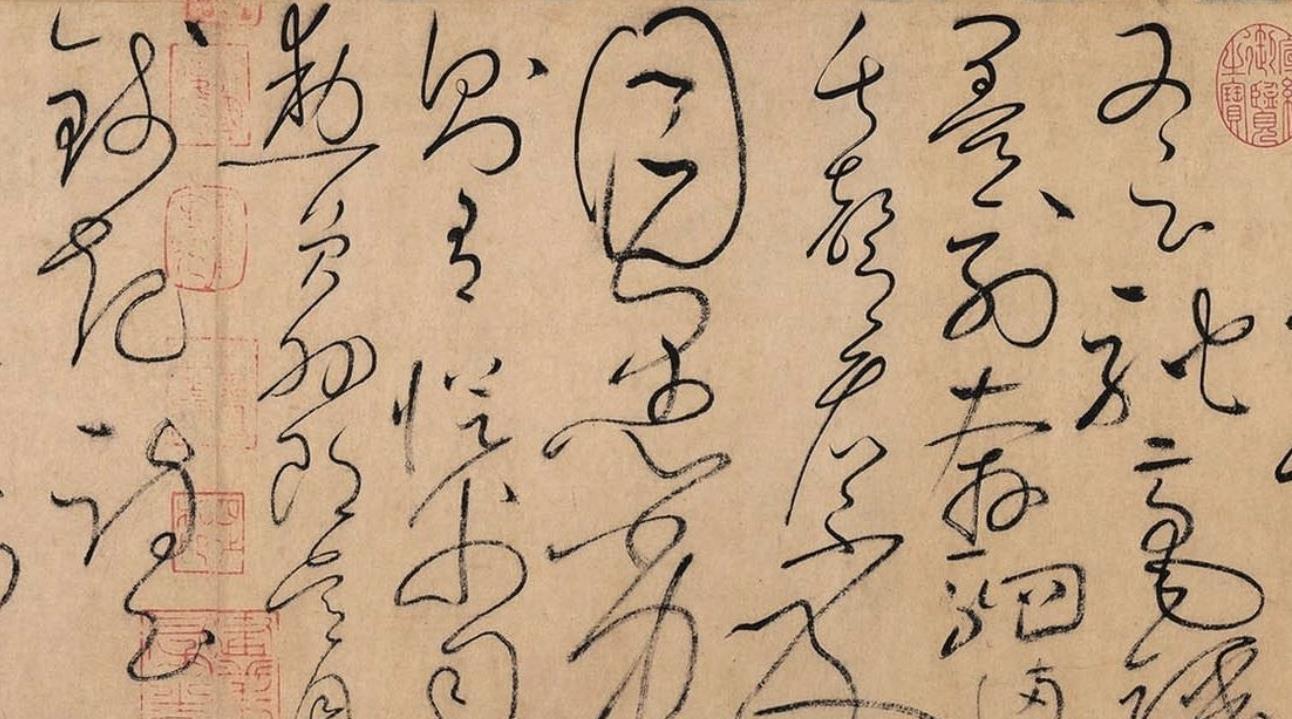 又云馳毫驟
墨列奔駟滿
失聲看不及
目愚劣
則有從父司
勳員外郎吳興
錢起詩云
御覽之寶